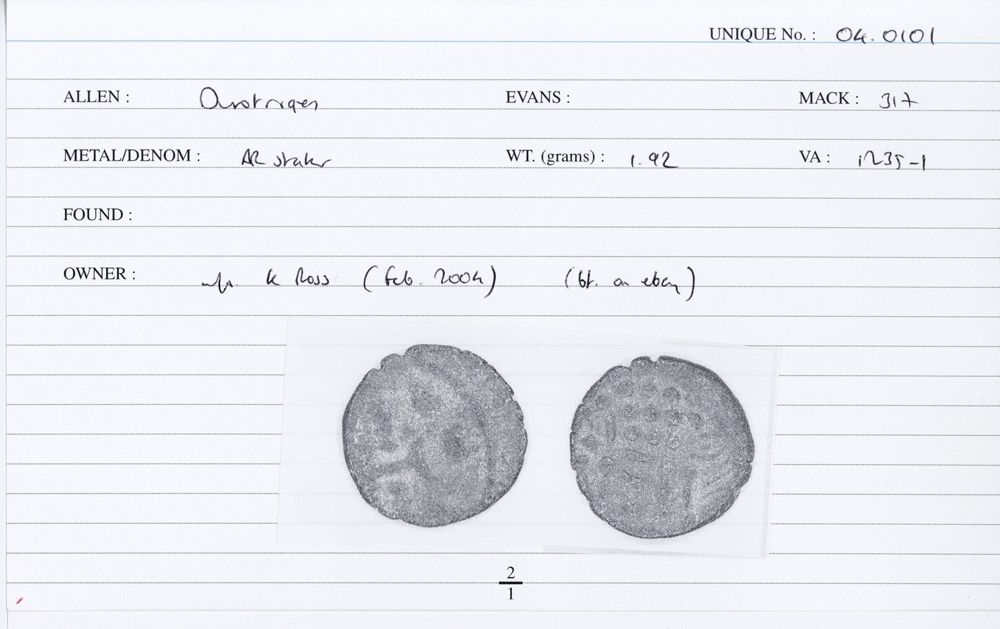 UNIQUE No. : 04.0101
ALLEN : Durotriges EVANS : MACK : 317
METAL/DENOM : AR stater WT. (grams) : 1.92 VA : 1235-1
FOUND :
OWNER : K Ross (Feb. 2004) (bt. on ebay)
2
1